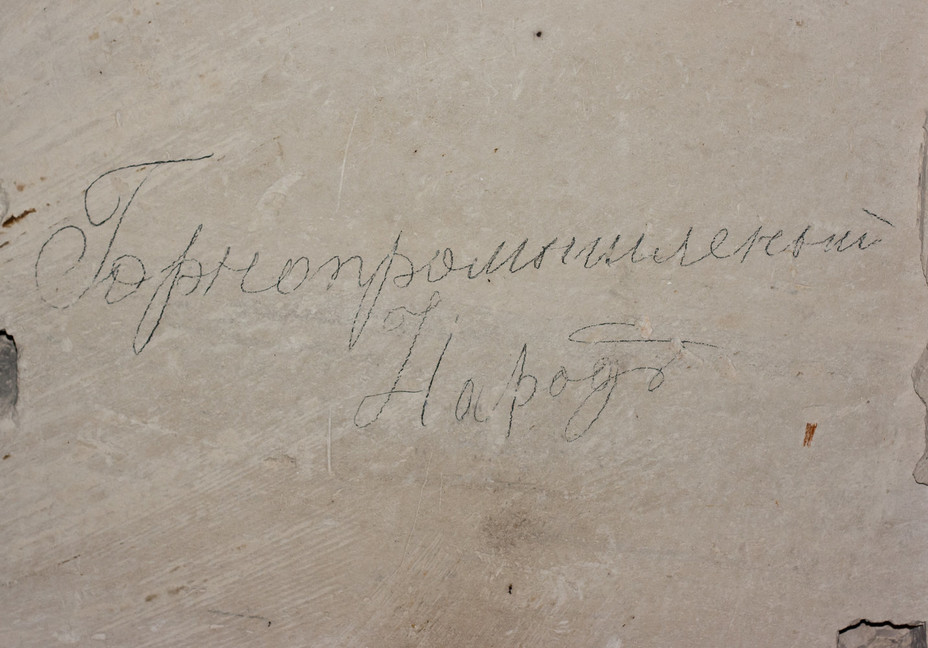 Горнопромышленый
Народъ